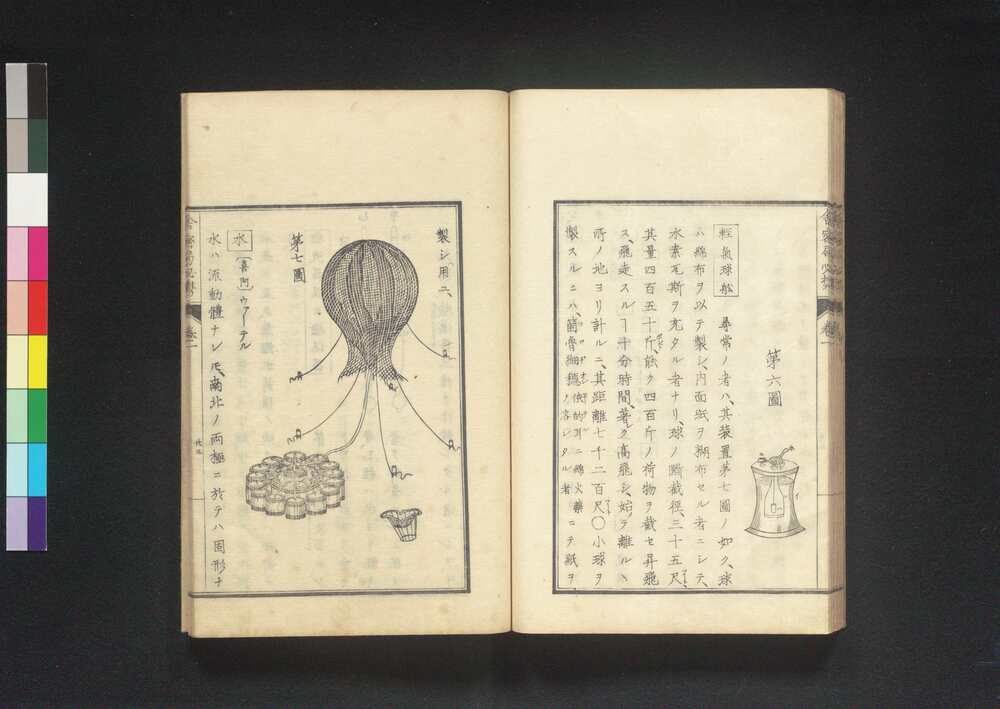 第六圖
輕氣球舩 尋常ノ者ハ、其裝置第七圖ノ如ク、球
ハ綿布ヲ以テ製シ、內面紙ヲ糊布セル者ニシテ、
水素瓦斯ヲ充タル者ナリ、球ノ斷截徑、三十五尺、
其量四百五十斤、能ク四百斤ノ荷物ヲ載セ昇騰
ス、飛走スルヿ十分時間、著ク高飛シ、始ヲ離ルヽ
所ノ地ヨリ計ルニ、其距離七千二百尺〇小球ヲ
製スルニハ、
綿火藥
ノ溶シタル者
ニテ紙ヲ
製シ用ユ、
第七圖
水 喜阿 ウァーテル
水ハ流動體ナレ𪜈、南北ノ両極ニ於テハ固形ナ
卷二